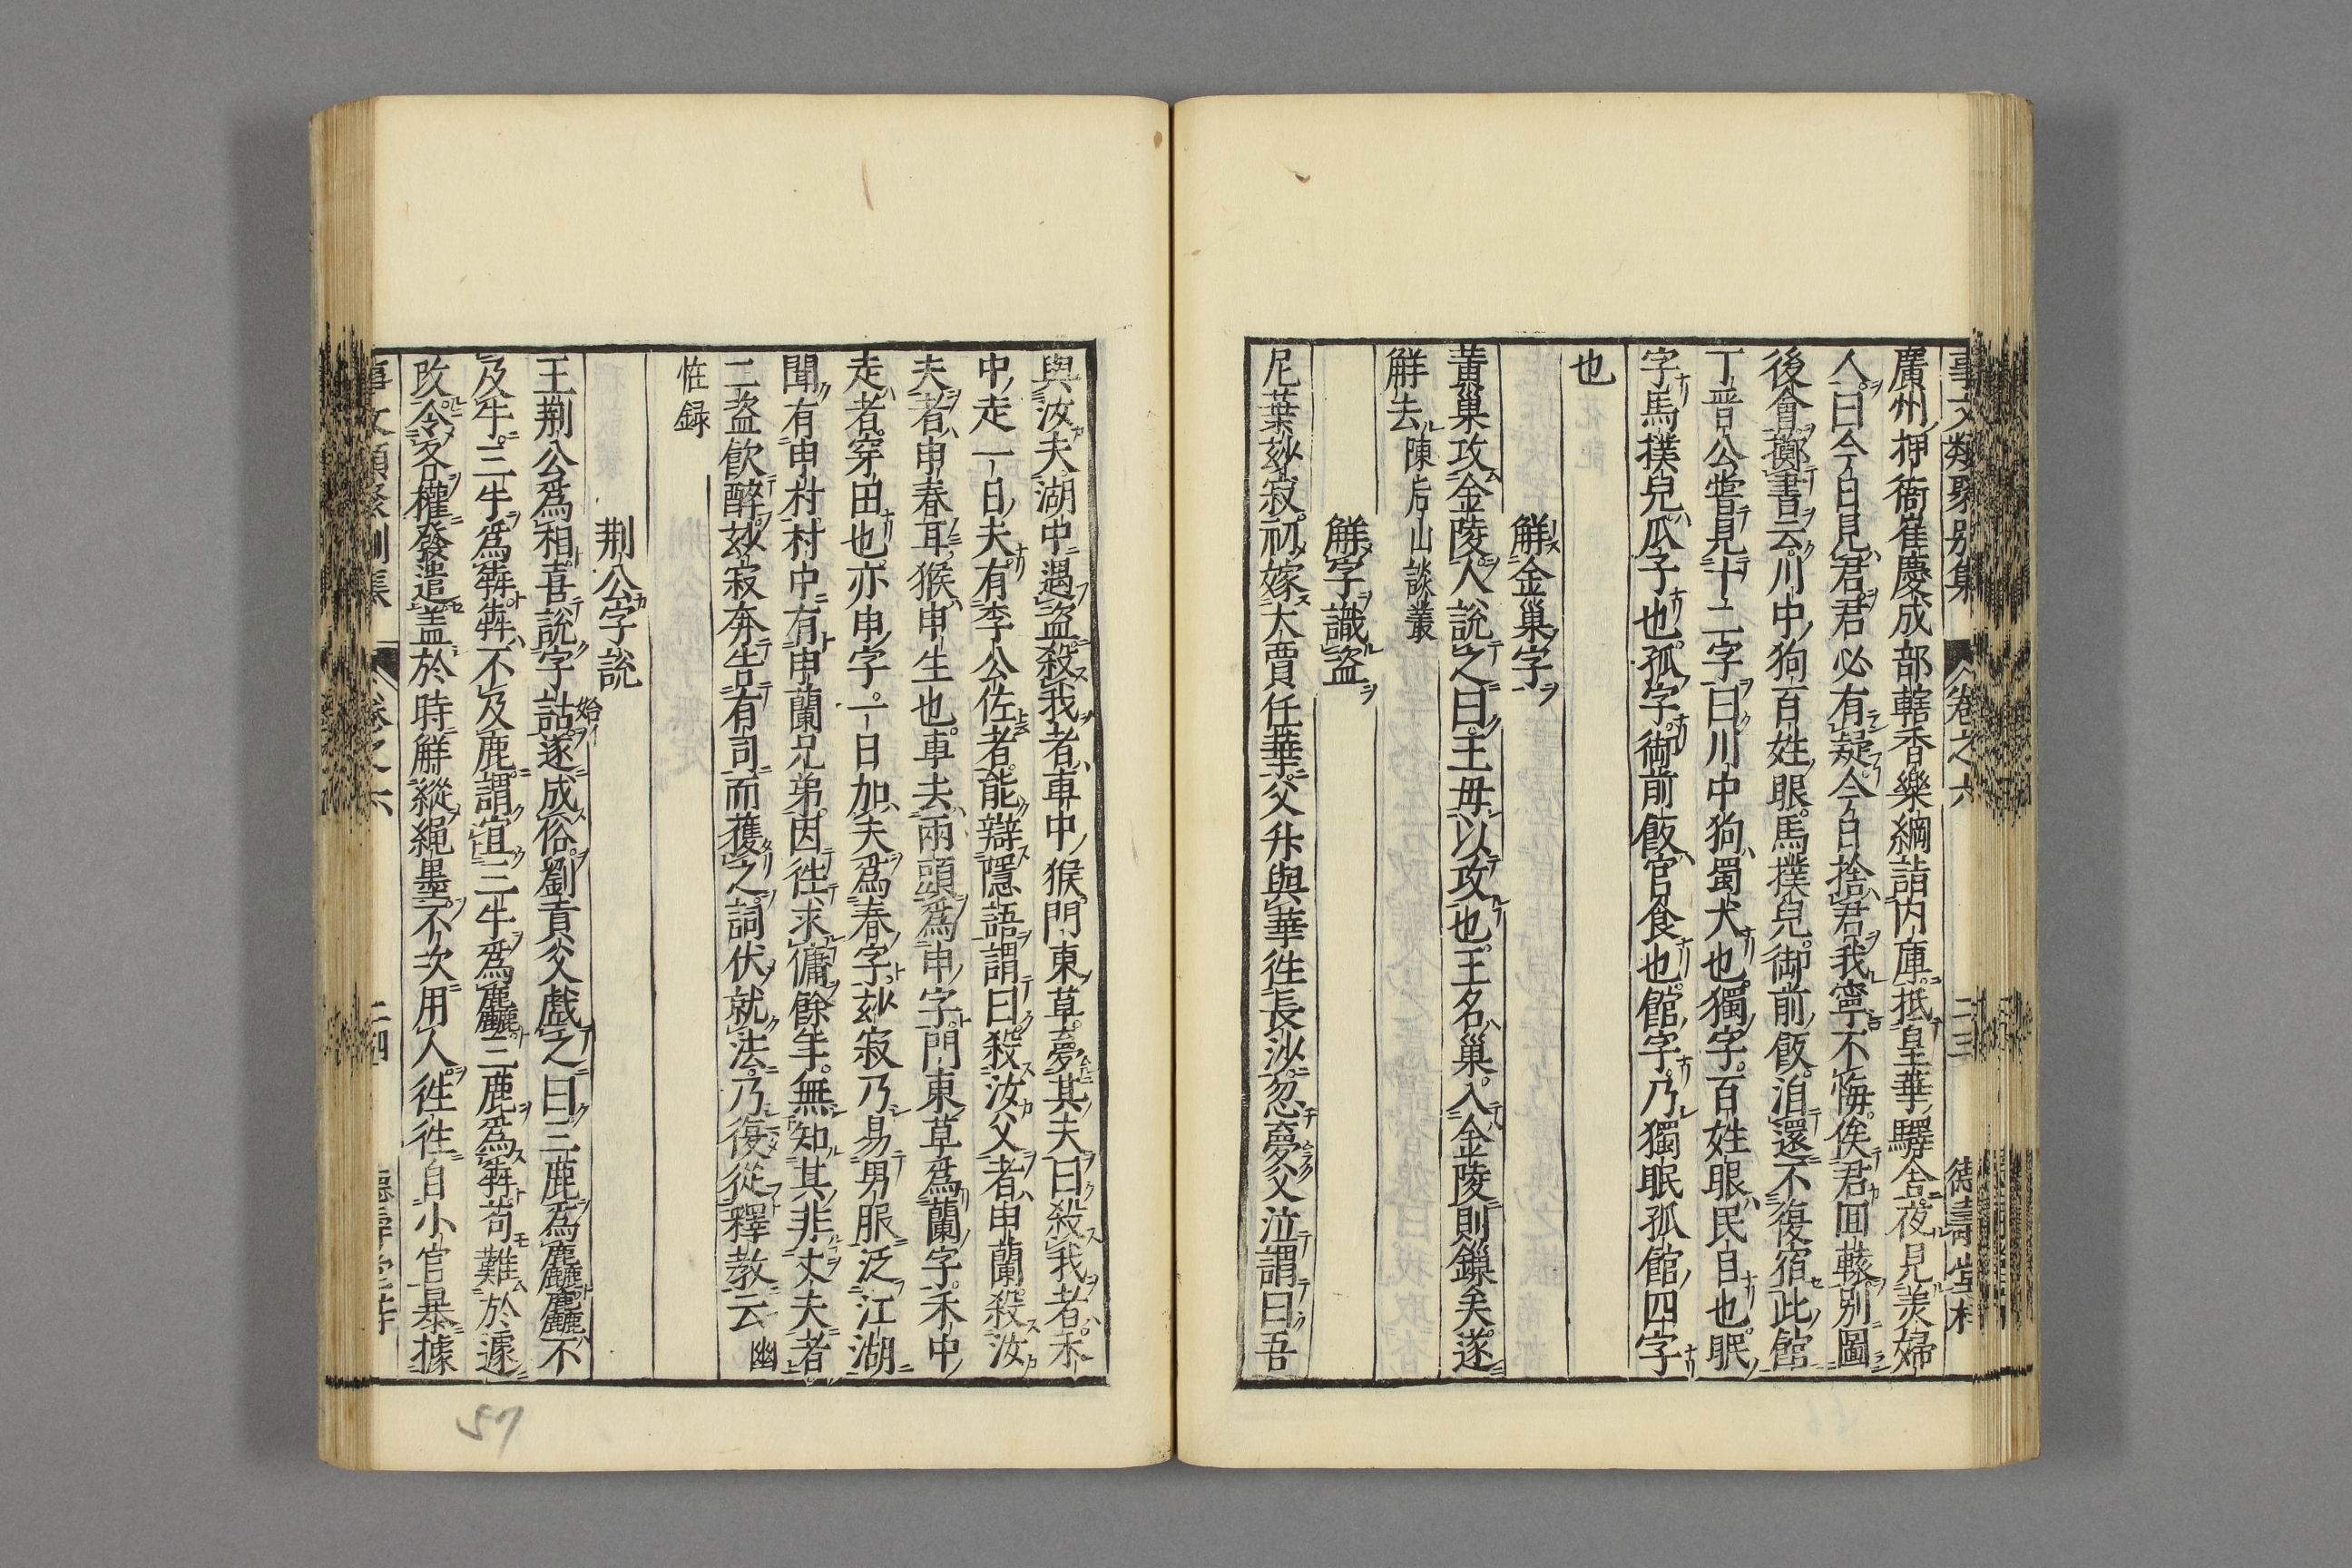 事文類聚別集 卷之六 二三
廣州押衙崔慶成部轄香藥綱詣内庫抵皇華驛舍夜見美婦
人曰今日見君君必有疑今日捨君我寧不悔俟君回轅別圖
後會擲書云川中狗百姓眼馬撲兒御前飯洎還不復宿此館
丁晋公嘗見十二字曰川中狗蜀犬也獨字百姓眼民目也眠
字馬撲兒瓜子也孤字御前飯官食也館字乃獨眠孤館四字
也
解金巢字
黃巢攻金陵人說之曰王毋以攻也王名巢入金陵則鏁矣遂
解去 陳后山談叢
解字識盜
尼葉玅寂初嫁大賈任華父升與華徃長沙忽夢父泣謂曰吾
與汝夫湖中遇盜殺我者車中猴門東草夢其夫曰殺我者禾
中走一日夫有李公佐者能辯隱語謂曰殺汝父者申蘭殺汝
夫者申春耳猴申生也車去兩頭爲申字門東草爲蘭字禾中
走者穿田也亦申字一日加夫爲春字玅寂乃易男服泛江湖
聞有申村村中有申蘭兄弟因徃求傭餘年無知其非丈夫者
二盜飲醉玅寂奔告有司而獲之詞伏就法乃復從釋教云 幽
恠録
荆公字説
王荆公爲相喜說字詁遂成俗劉貢父戲之曰三鹿爲麤麤不
及牛三牛爲犇犇不及鹿謂宜三牛爲麤三鹿爲犇苟難於遽
改令各權發遣盖於時解縱繩墨不次用人徃徃自小官暴據
卷之六 二四
57